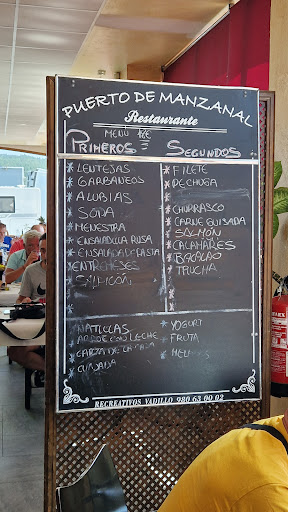 PUERTO DE MANZANAL
Restaurante
MENU
PRIMEROS
SEGUNDOS
* LENTEJAS
* GARBANEOS
* ALUBIAS
* SOPA
* MENESTRA
* ENSALADILLA RUSA
* ENSALADA DE PASTA
* ENTREMESES
* FILETE
* DECHUGA
* CHURRASCO
* CARNE GUISADA
* SALMÓN
* CALAMARES
* BACALAO
* TRUCHA
* NATILLAS
* ARROZ CON LECHE
* TARTA DE LA CASA
* CUAJADA
* YOGURT
* FRUTA
RECREATIVOS VADILLO 980 63 00 02